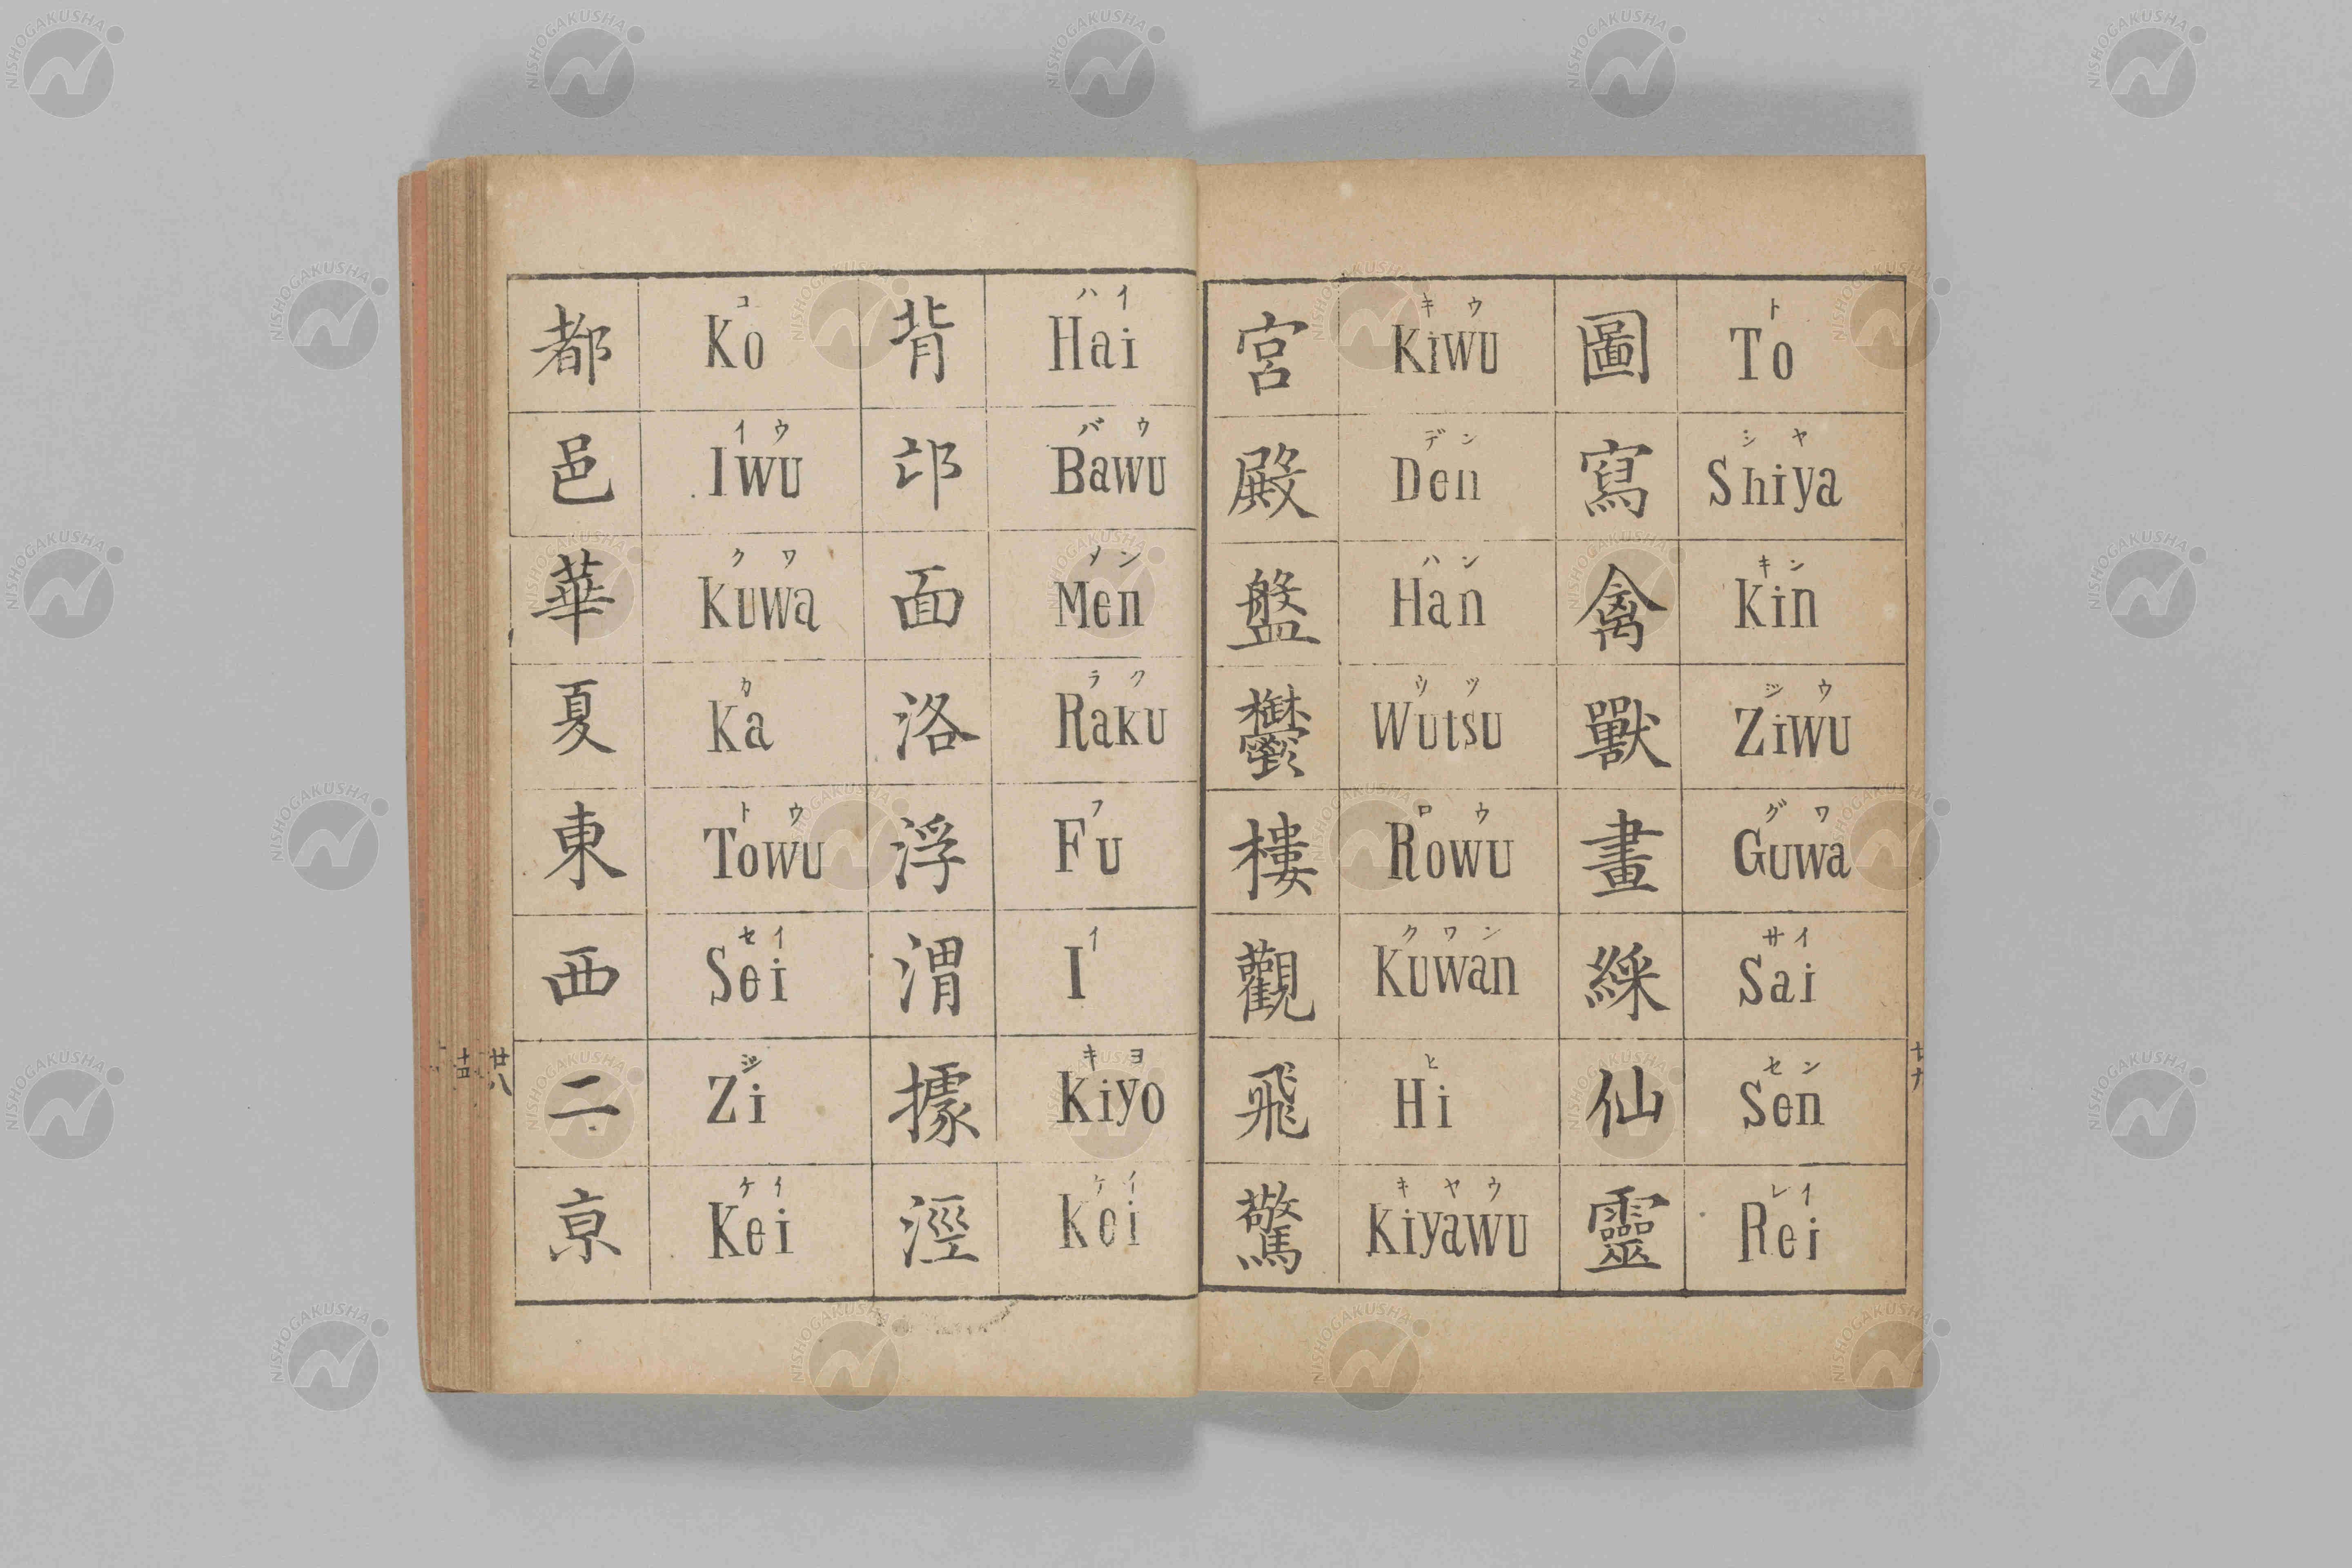 都 コ Ko
邑 イウ Iwu
華 クワ Kuwa
夏 カ Ka
東 トウ Towu
西 セイ Sei
二 ジ Zi
京 ケイ Kei
背 ハイ Hai
邙 バウ Bawu
面 メン Men
洛 ラク Raku
浮 フ Fu
渭 イ I
據 キヨ Kiyo
涇 ケイ Kei
宮 キウ Kiwu
殿 デン Den
盤 ハン Han
鬱 ウツ Wutsu
樓 ロウ Rowu
觀 クワン Kuwan
飛 ヒ Hi
驚 キヤウ Kiyawu
圖 ト To
寫 シヤ Shiya
禽 キン Kin
獸 ジウ Ziwu
畫 グワ Guwa
綵 サイ Sai
仙 セン Sen
靈 レイ Rei
廿八
NISHOGAKUSHA